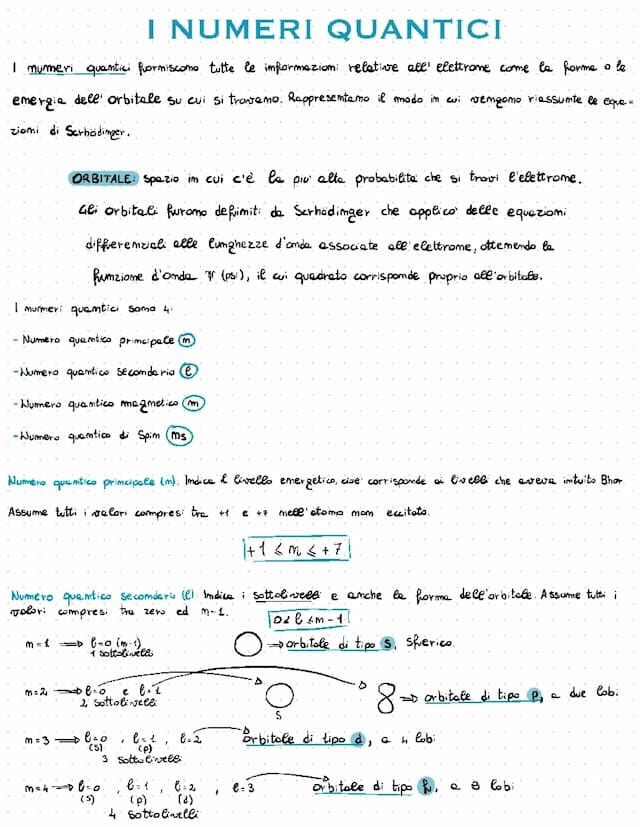 I NUMERI QUANTICI
I numeri quantici forniscono tutte le informazioni relative all'elettrone come la forma o la
energia dell'orbitale su cui si trovano. Rappresentano il modo in cui vengono riassunte le equa-
zioni di Scrhödinger.
ORBITALE: spazio in cui c'è la piu' alta probabilità che si trovi l'elettrone.
Gli orbitali furono definiti da Scrhödinger che applico' delle equazioni
differenziali alle lunghezze d'onda associate all'elettrone, ottenendo la
funzione d'onda Ψ (psi), il cui quadrato corrisponde proprio all'orbitale.
I numeri quantici sono 4:
- Numero quantico principale n
- Numero quantico secondario l
- Numero quantico magnetico m
- Numero quantico di Spin ms
Numero quantico principale (n). Indica il livello energetico, cioe' corrisponde ai livelli che aveva intuito Bhor.
Assume tutti i valori compresi tra +1 e +7 nell'atomo non eccitato.
+1 ≤ n ≤ +7
Numero quantico secondario (l) Indica i sottolivelli e anche la forma dell'orbitale. Assume tutti i
valori compresi tra zero ed n-1.
0 ≤ l ≤ n-1
n=1 ⟹ l=0 (n-1) ⟹ orbitale di tipo s, sferico.
1 sottolivelli
n=2 ⟹ l=0 e l=1 ⟹ orbitale di tipo p, a due lobi
2 sottolivelli S
n=3 ⟹ l=0, l=1, l=2 orbitale di tipo d, a 4 lobi
(s) (p)
3 sottolivelli
n=4 ⟹ l=0, l=1, l=2, l=3 orbitale di tipo f, a 8 lobi
(s) (p) (d)
4 sottolivelli